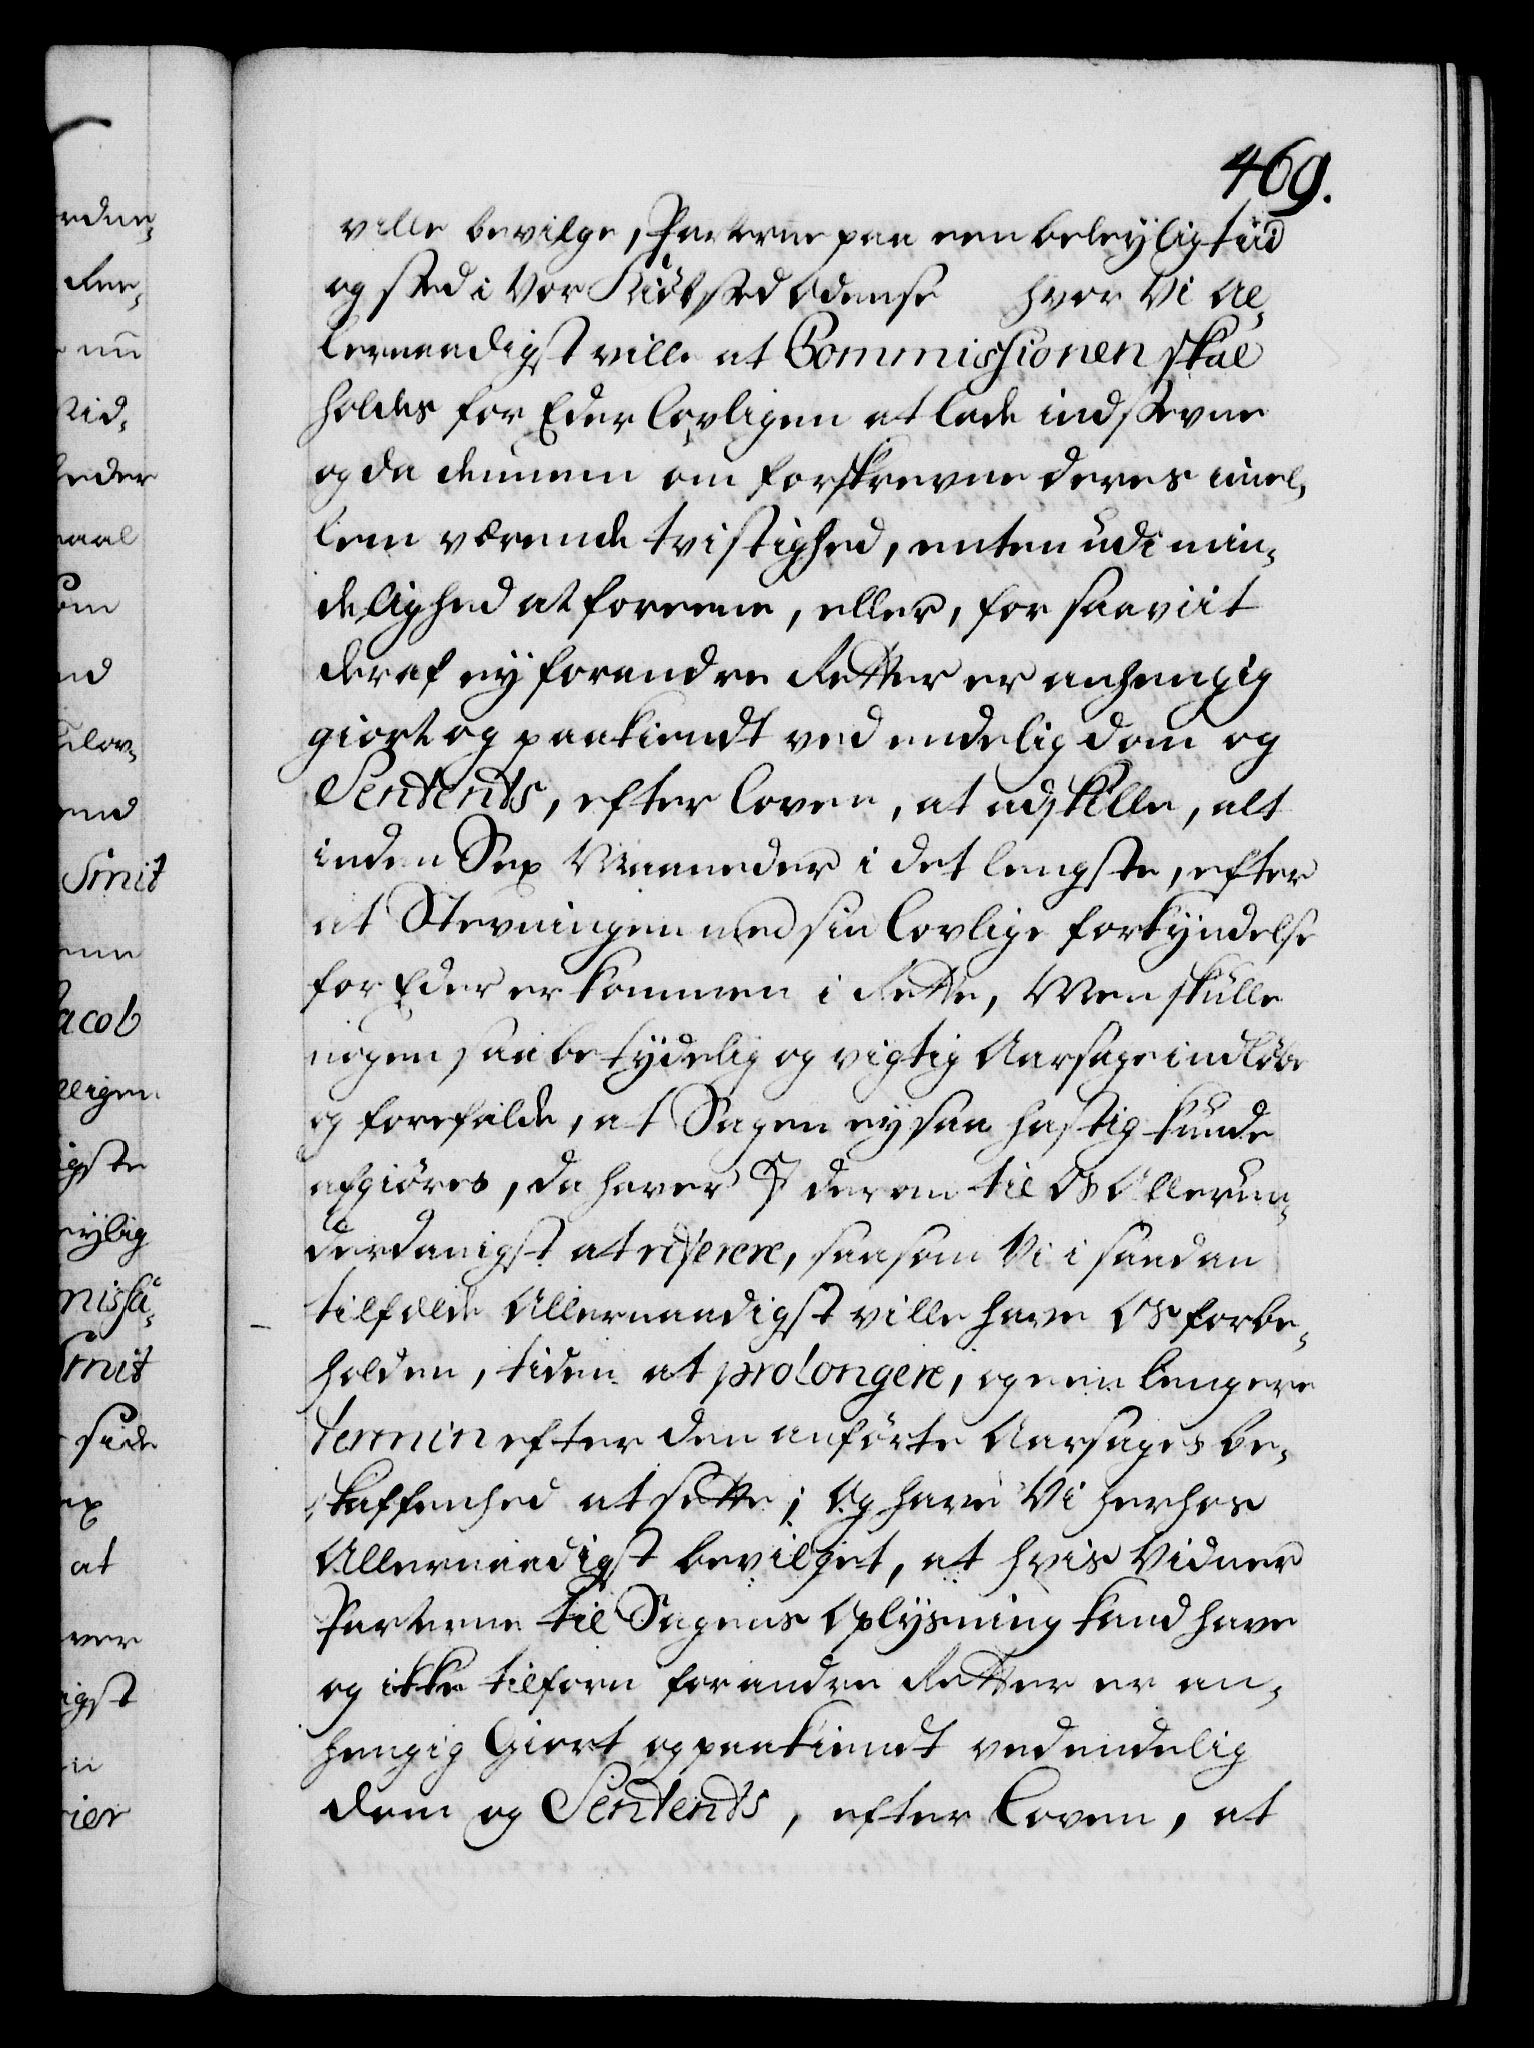 469.
ville bevilge, Parterne paa een beleylig tiid
og sted i Vor Kiöbsted Odense hvor Vi Al,
lernaadigst ville at Commissionen skal
holdes for Eder lovligen at lade indstevne
og da dennem om forskrevne deres imel,
lem værende tvistighed, enten udi min,
delighed at foreene, eller, for saaviit
deraf ey for andre Retter er anhengig
giort og paakiendt ved endelig dom og
Sentents, efter loven, at adskille, alt
inden Sex Maaneder i det lengste, efter
at Stevningen med sin lovlige forkyndelse
for Eder er kommen i Rette, Men skulle
nogen saa betydelig og vigtig Aarsage indlöbe
og forefalde, at Sagen ey saa hastig kunde
afgiöres, da haver I derom til Os Allerun,
derdanigst at referere, saasom Vi i saadan
tilfælde Allernaadigst ville have Os forbe,
holden, tiden at prolongere, og een lengere
termin efter den anförte Aarsages be,
skaffenhed at sette; Og have Vi herhos
Allernaadigst bevilget, at hvis Vidner
Parterne til Sagens Oplysning kand have
og ikke tilforn for andre Retter er an,
hengig Giort og paakiendt ved endelig
dom og Sentents, efter Loven, at
Smit
Jacob
side
at